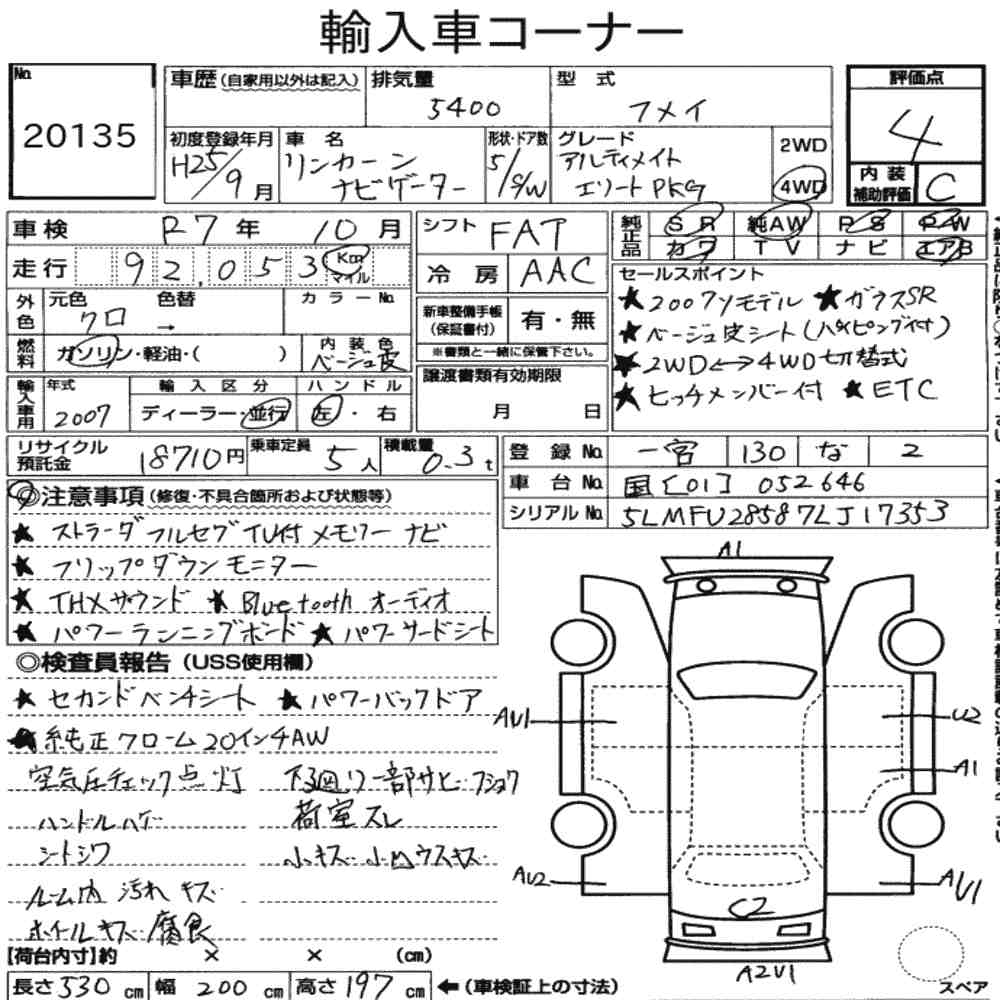 輸入車コーナー
No. 20135
車歴(自家用以外は記入) 排気量 5400 型式 フメイ
初度登録年月 H25/9月 車名 リンカーン ナビゲーター 形状・ドア数 5/S/W グレード アルティメイト エリートPKG 2WD 4WD
評価点 4
内装補助評価 C
車検 R7年 10月
走行 92,053 Km マイル
外色 元色 クロ 色替 → カラーNo.
燃料 ガソリン・軽油・( ) 内装色 ベージュ皮
輸入車用 年式 2007 輸入区分 ディーラー・並行 ハンドル 左・右
シフト FAT
冷房 AAC
新車整備手帳(保証書付) 有・無
※書類と一緒に保管下さい。
譲渡書類有効期限 月 日
純正品 SR 純AW PS PW
カワ TV ナビ エアB
セールスポイント
★2007yモデル ★ガラスSR
★ベージュ皮シート(パイピング付)
★2WD↔4WD切替式
★ヒッチメンバー付 ★ETC
リサイクル預託金 18710円 乗車定員 5人 積載量 0.3t
登録No. 一宮 130 な 2
車台No. 国[01]052646
シリアルNo. 5LMFU28587LJ17353
◎注意事項(修復・不具合箇所および状態等)
★ストラーダ フルセグTV付 メモリーナビ
★フリップダウンモニター
★THXサウンド ★Bluetooth オーディオ
★パワーランニングボード ★パワーサードシート
◎検査員報告(USS使用欄)
★セカンドベンチシート ★パワーバックドア
★純正クローム20インチAW
空気圧チェック点灯 下廻り一部サビ・フショク
ハンドルハゲ 荷室スレ
シートシワ 小キズ 小Mウスキズ
ルーム内 汚れ キズ
ホイールキズ 腐食
【荷台内寸】約 × × (cm)
長さ530cm 幅200cm 高さ197cm ←(車検証上の寸法)
A1
AU1 U2
A1
AU2 AU1
C2
A2U1
スペア